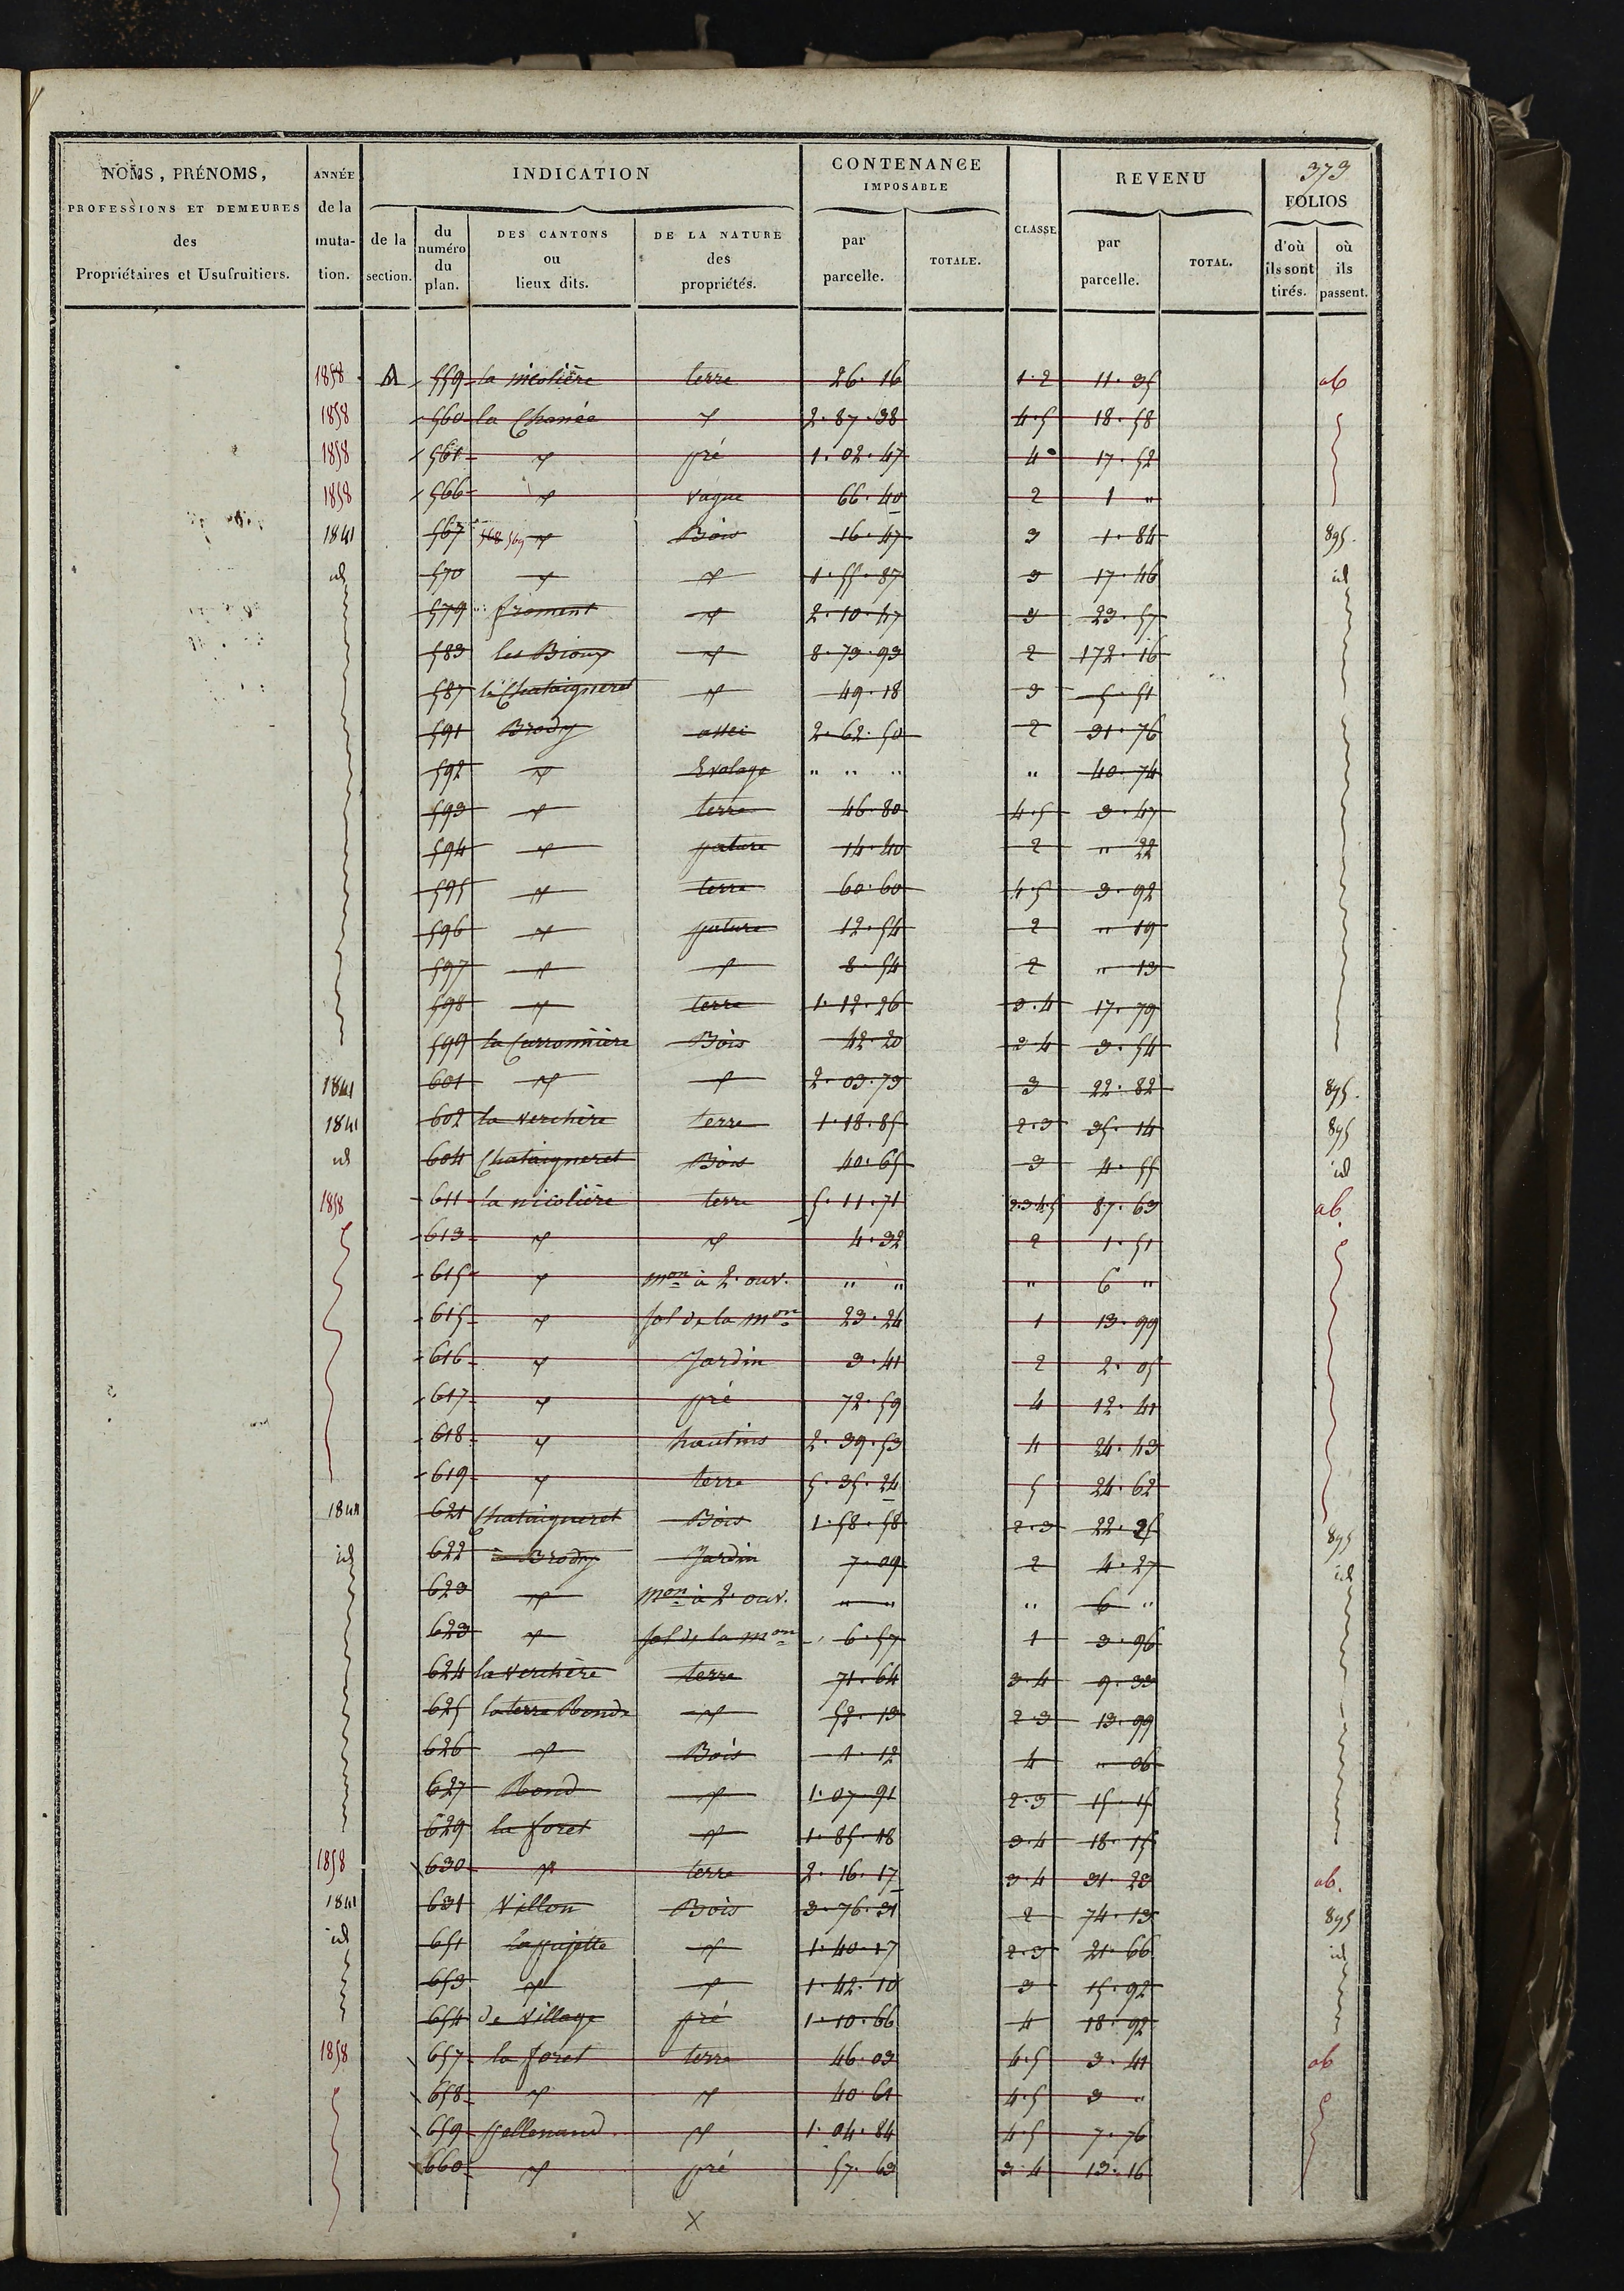 373
NOMS, PRÉNOMS, PROFESSIONS ET DEMEURES des Propriétaires et Usufruitiers. | ANNÉE de la mutation. | INDICATION de la section. | du numéro du plan. | DES CANTONS ou lieux dits. | DE LA NATURE des propriétés. | CONTENANCE IMPOSABLE par parcelle. | TOTALE. | CLASSE | REVENU par parcelle. | TOTAL. | FOLIOS d'où ils sont tirés. | où ils passent.
1858 A 559 la nicolière terre 26.16 1.2 11.35 ab
1858 560 la Chanée 2.87.38 4.5 18.58
1858 561 " pré 1.02.47 4 17.52
1858 566 " vague 66.40 2 1 "
1841 567 568 569 " Bois 16.47 3 1.84 895.
id 570 " " 1.55.87 3 17.46 id
579 froment " 2.10.47 3 23.57
583 les Bioux " 8.73.93 2 172.16
587 le Chataigneret " 49.18 3 5.51
591 Brody assec 2.62.50 2 31.76
592 " Evolage " " " " 40.74
593 " terre 46.80 4.5 3.47
594 " pature 14.40 2 " 22
595 " terre 60.60 4.5 3.92
596 " pature 12.54 2 " 19
597 " " 8.54 2 " 13
598 " terre 1.12.26 3.4 17.79
599 la Carronnière Bois 42.20 3.4 3.54
1841 601 " " 2.03.73 3 22.82 895.
1841 602 la verchère terre 1.18.85 2.3 35.14 895
id 604 Chataigneret Bois 40.65 3 4.55 id
1858 611 la nicolière terre 5.11.71 2.3.4.5 87.63 ab.
613 " " 4.32 2 1.51
615 " mon à 2. ouv. " " " 6 "
615 " sol de la mon 23.24 1 13.99
616 " Jardin 3.41 2 2.05
617 " pré 72.59 4 12.41
618 " hautins 2.39.53 4 24.43
619 " terre 5.35.24 5 24.62
1841 621 Chataigneret Bois 1.58.58 2.3 22.25 895
id 622 à Brody Jardin 7.09 2 4.27 id
623 " mon à 2. ouv. " " " 6 "
623 " sol de la mon 6.57 1 3.96
624 la verchère terre 71.64 3.4 9.33
625 la terre Ronde " 52.13 2.3 13.99
626 " Bois 1.12 4 " 06
627 Rond " 1.07.91 2.3 15.15
629 la foret " 1.85.18 3.4 18.15
1858 630 " terre 2.16.17 3.4 31.23 ab.
1841 631 Villon Bois 3.76.31 2 74.13 895
id 651 " 1.40.17 2.3 21.66 id
653 " " 1.42.10 3 15.92
654 de Village pré 1.10.66 4 18.92
1858 657 la foret terre 46.03 4.5 3.41 ab
658 " " 40.61 4.5 3 "
659 pellenand " 1.04.84 4.5 7.76
660 " pré 57.63 3.4 13.16
X